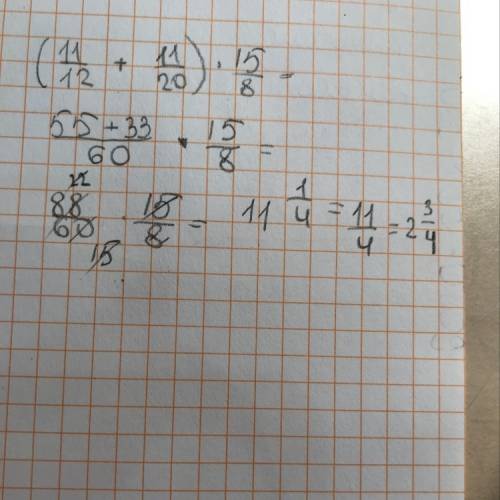 (11/12 + 11/20) · 15/8 =
55+33/60 · 15/8 =
22
88/60 · 15/8 = 11 1/4 = 11/4 = 2 3/4
15